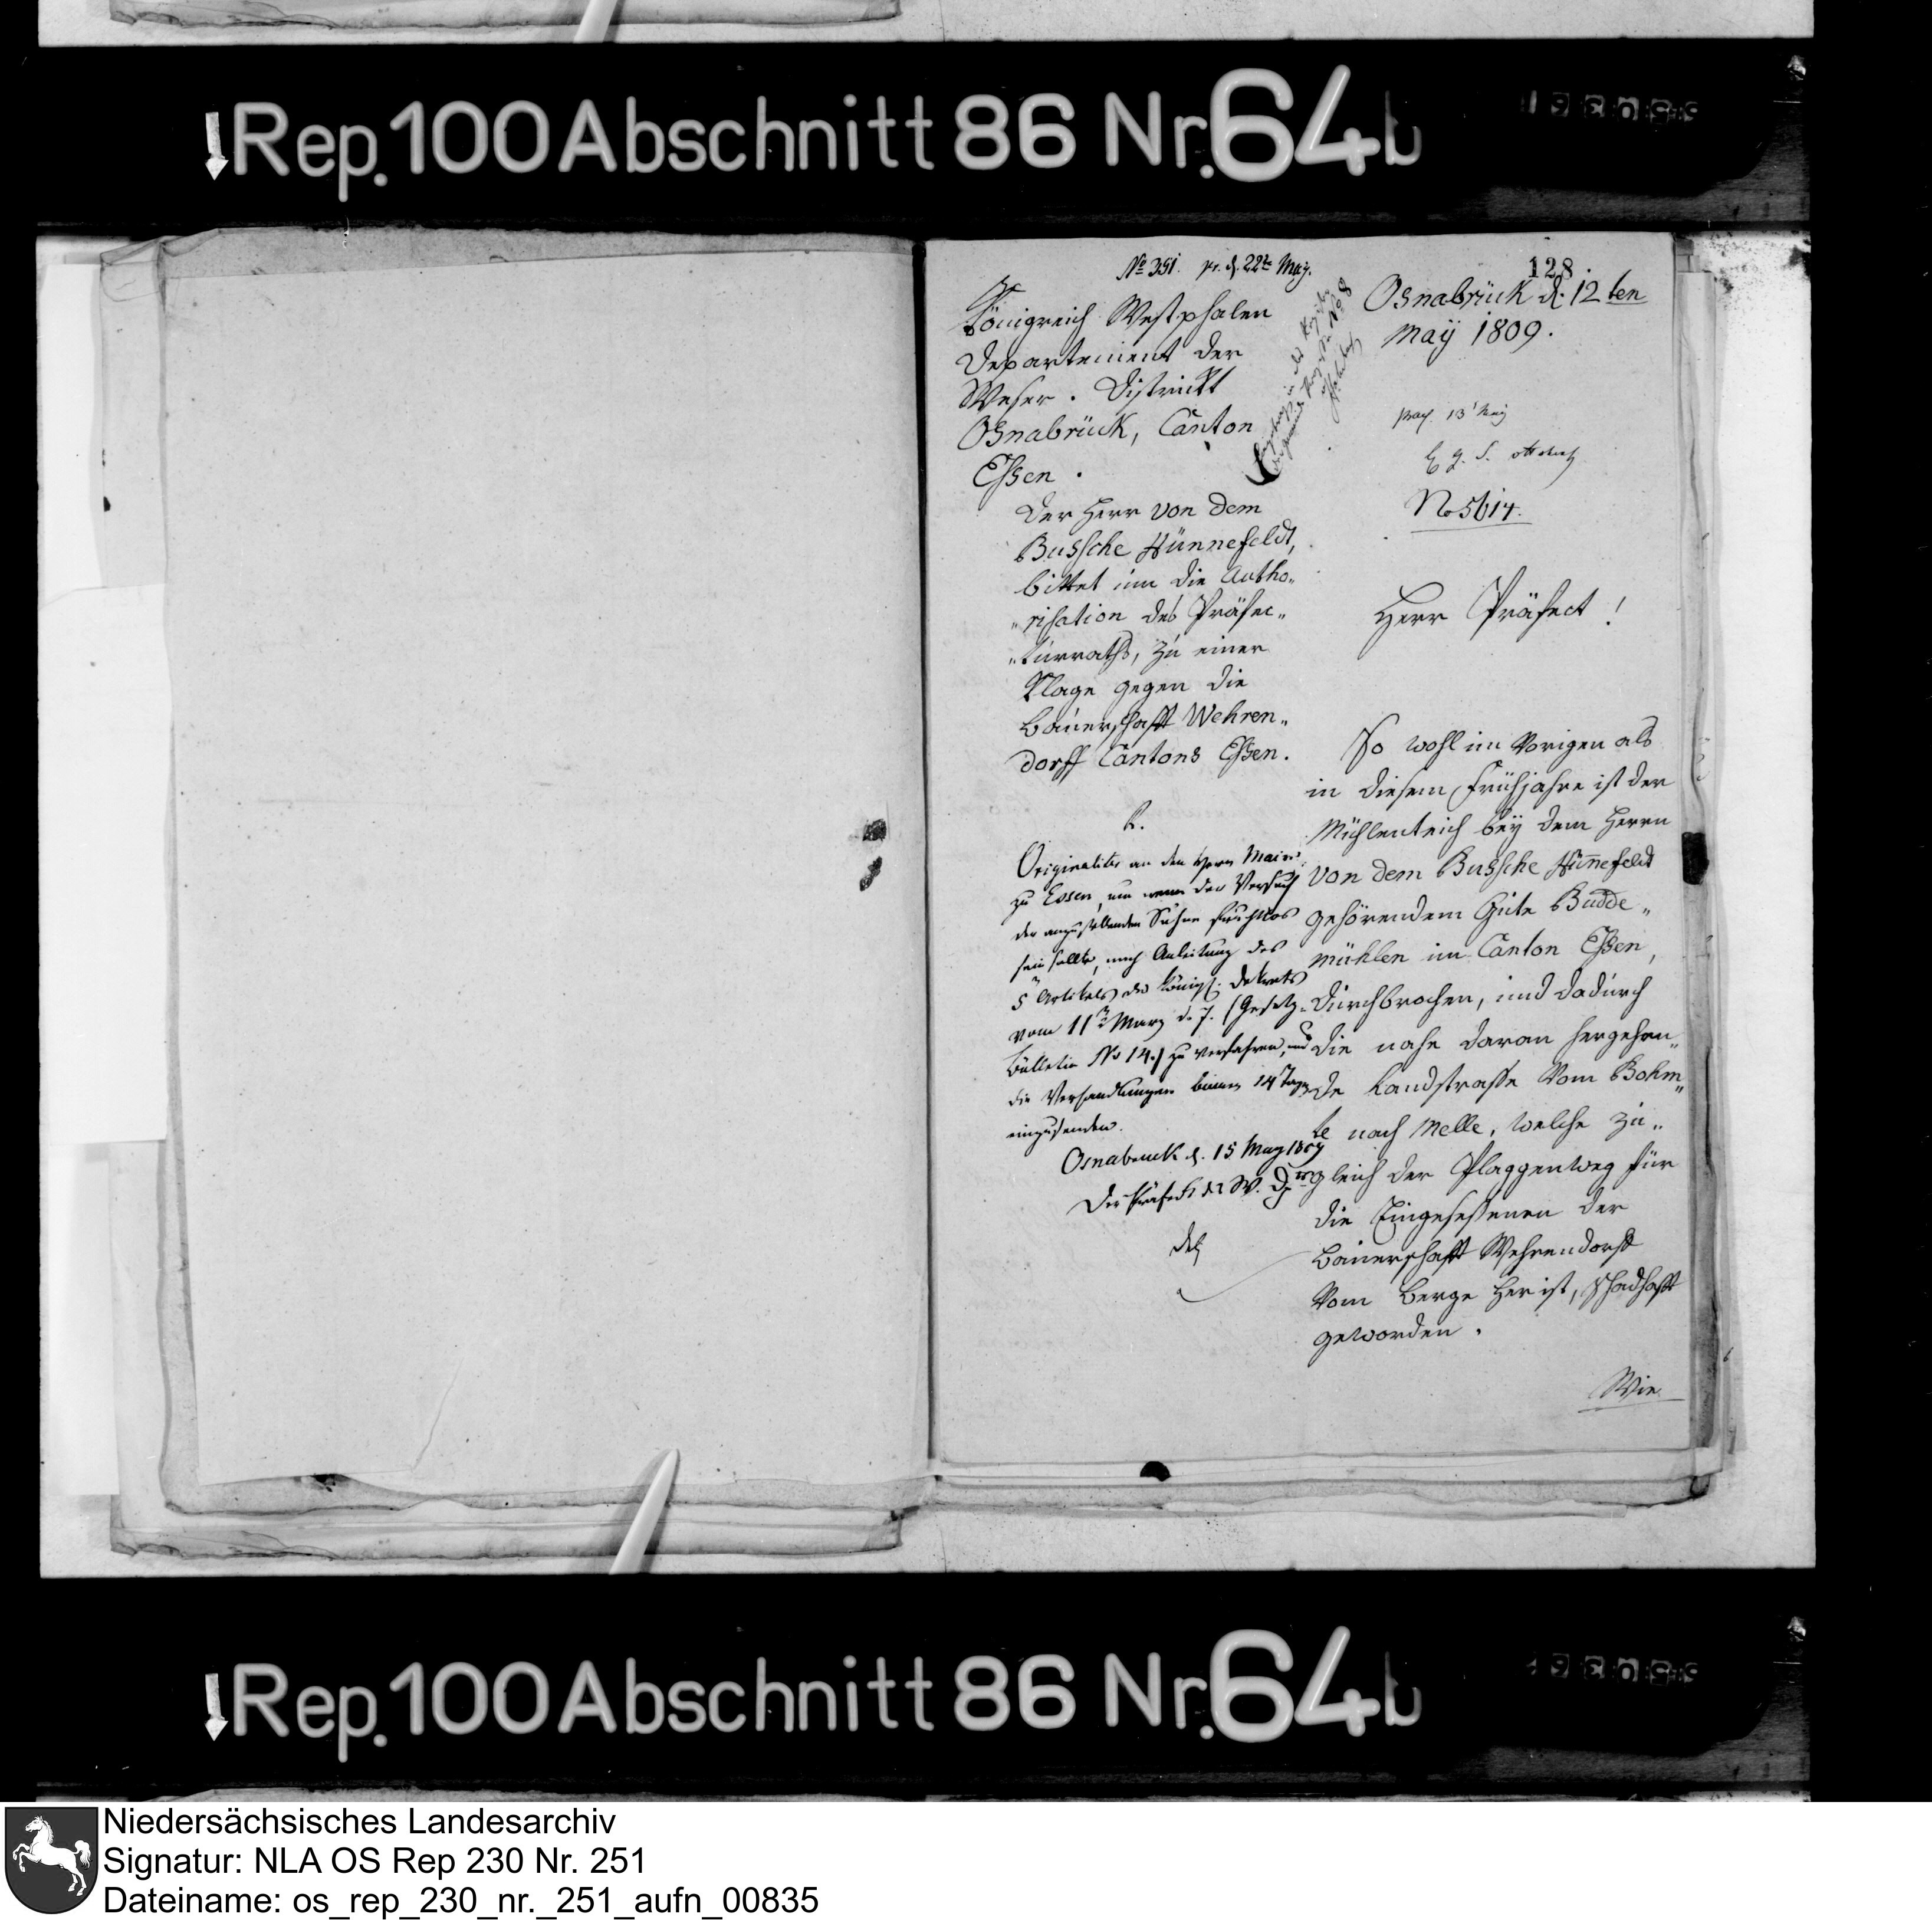 Rep. 100 Abschnitt 86 Nr. 64b
No 351. pr. d. 22t May.
128
Königreich Westphalen
Departement der
Weser. District
Osnabrück, Canton
Essen.
Osnabrück d. 12ten
May 1809.
No 5614.
Der Herr von dem
Bussche Hünnefeldt,
bittet um die Autho„
„risation des Präfec„
„turraths, zu einer
Klage gegen die
Bauerschafft Wehren„
dorff Cantons Essen.
Herr Präfect!
So wohl im vorigen als
in diesem Frühjahre ist der
Mühlenteich bey dem Herrn
von dem Bussche Hünnefeldt
gehörendem Gute Budde„
mühlen im Canton Essen,
durchbrochen, und dadurch
die nahe daran hergehen„
de Landstrasse vom Bohm„
te nach Melle, welche zu„
gleich der Plaggenweg für
die Eingesessenen der
Bauerschafft Wehrendorff
vom Berge her ist, schadhafft
geworden.
Wie
Originaliter an den Herrn Maire
zu Essen, um wenn der Versuch
der anzustellenden Sühne fruchtlos
sein sollte, nach Anleitung des
5n Artikels des Königl. Dekrets
vom 11n März d. J. (Gesetz-
Bülletin No 14.) zu verfahren, und
die Verhandlungen binnen 14 Tagen
einzusenden.
Osnabruck d. 15 May 1809
Der Präfect des W. Dpts
Rep. 100 Abschnitt 86 Nr. 64b
Niedersächsisches Landesarchiv
Signatur: NLA OS Rep 230 Nr. 251
Dateiname: os_rep_230_nr._251_aufn_00835